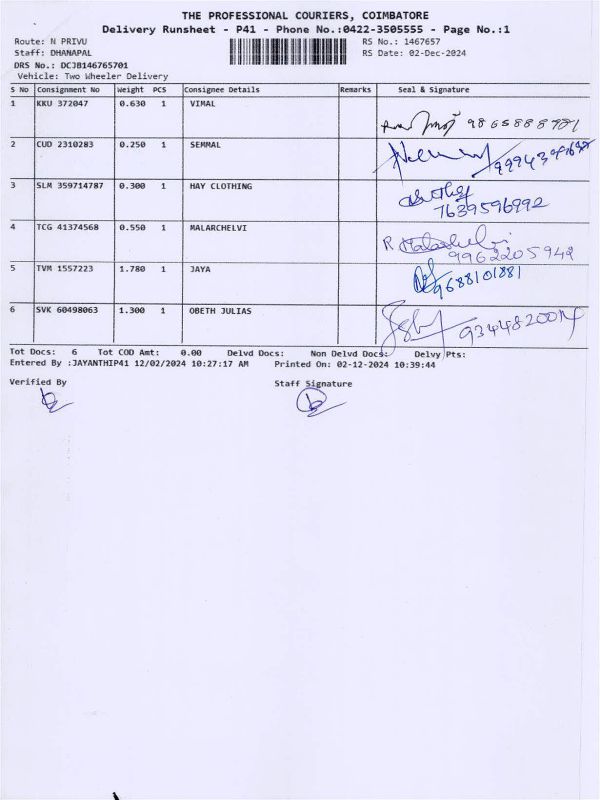 THE PROFESSIONAL COURIERS, COIMBATORE
Delivery Runsheet - P41 - Phone No.:0422-3505555 - Page No.:1
Route: N PRIVU RS No.: 1467657
Staff: DHANAPAL RS Date: 02-Dec-2024
DRS No.: DCJB146765701
Vehicle: Two Wheeler Delivery
S No Consignment No Weight PCS Consignee Details Remarks Seal & Signature
1 KKU 372047 0.630 1 VIMAL
9865888981
2 CUD 2310283 0.250 1 SEMMAL
3 SLM 359714787 0.300 1 HAY CLOTHING
7639596992
4 TCG 41374568 0.550 1 MALARCHELVI R Malarchelvi
9962205942
5 TVM 1557223 1.780 1 JAYA 9688101881
6 SVK 60498063 1.300 1 OBETH JULIAS
Tot Docs: 6 Tot COD Amt: 0.00 Delvd Docs: Non Delvd Docs: Delvy Pts:
Entered By :JAYANTHIP41 12/02/2024 10:27:17 AM Printed On: 02-12-2024 10:39:44
Verified By Staff Signature